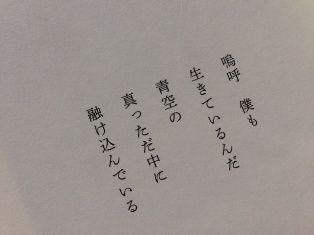 嗚呼　僕も
生きているんだ
青空の
真っただ中に
融け込んでいる